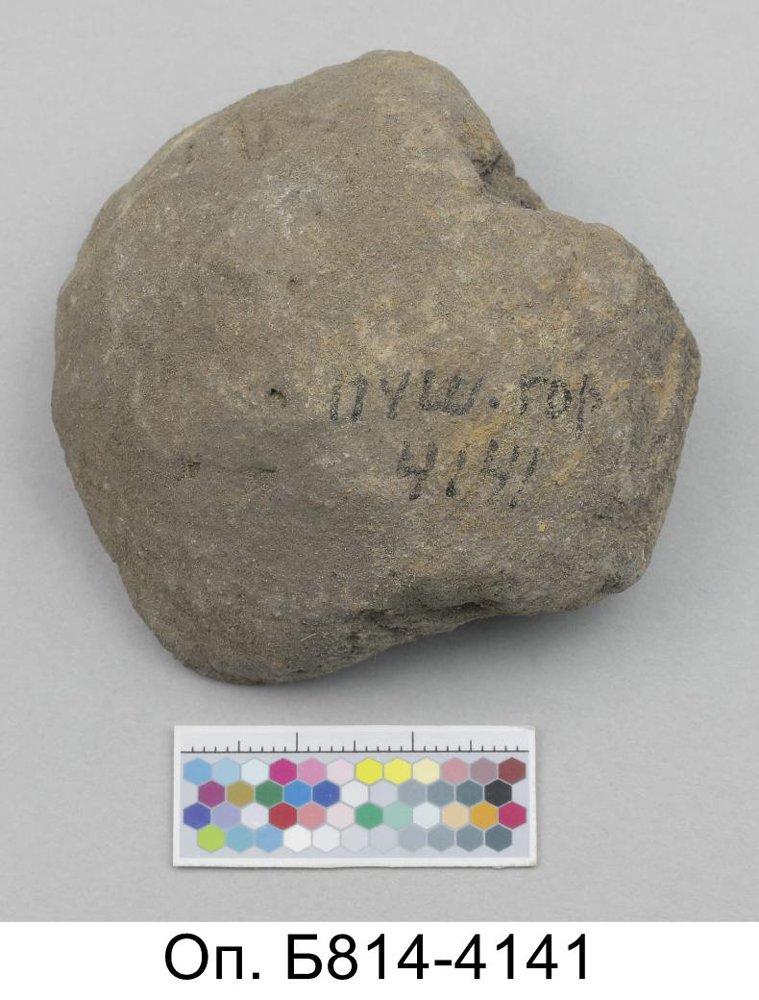 ПУШ. ГОР
4141
Оп. Б814-4141